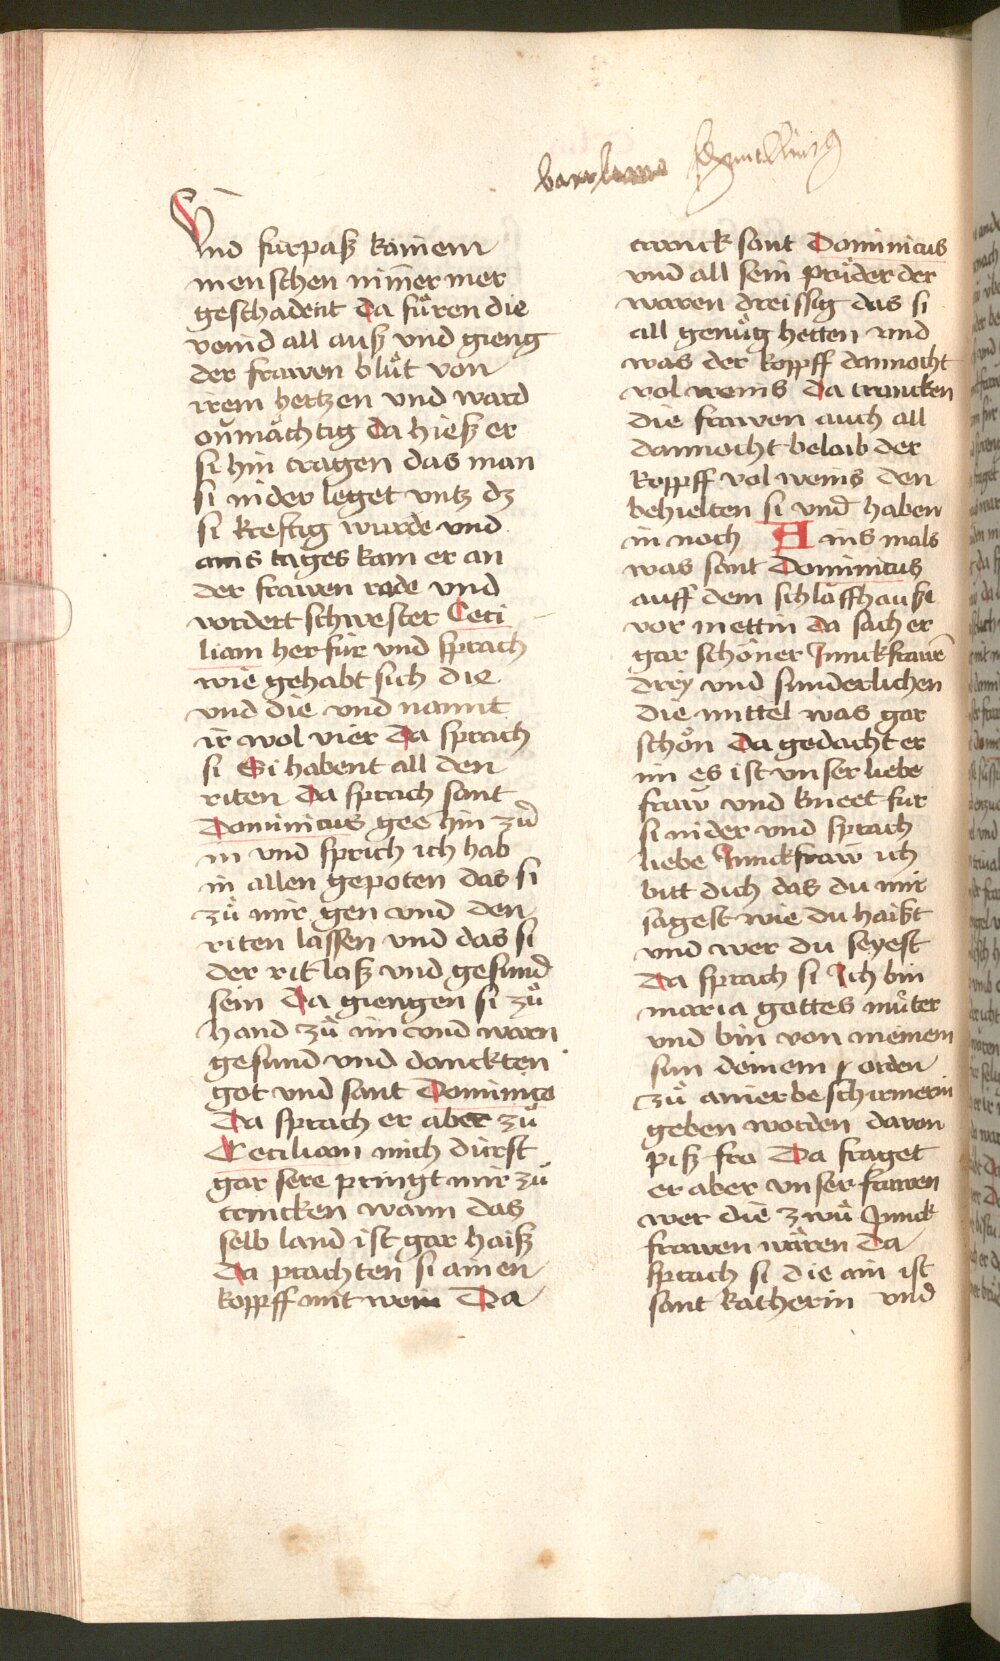 Vnd furpaß kainem
menschen nim̅er mer
geschadent da fůren die
veind all auß vnd gieng
der frawen blůt von
irem hertzen vnd ward
onmächtig da hieß er
si hin tragen das man
si nider leget vntz dz
si kreftig wurde vnd
ains tages kam er an
der frawen rede vnd
vordert schwester Ceci
liam herfür vnd sprach
wie gehabt sich die
vnd die vnd nannt
ir wol vier Da sprach
si Si habent all den
riten Da sprach sant
Dominicus gee hin zů
in vnd sprich ich hab
in allen gepoten das si
zů mir gen vnd den
riten lassen vnd das si
der rit laß vnd gesund
sein Da giengen si zů
hand zů im vnd warn
gesund vnd danckten
got vnd sant Dominico
Da sprach er aber zů
Ceciliam mich dürst
gar sere pringt mir zů
trincken wann das
selb land ist gar haiß
Da prachten si ainen
kopff mit wein Da
tranck sant Dominicus
vnd all sein prüder der
waren dreissig das si
all genůg hetten vnd
was der kopff dannocht
vol weins Da truncken
die frawen auch all
dannocht belaib der
kopff vol weins den
behielten si vnd haben
in noch Ains mals
was sant Dominicus
auff dem schlaffhause
vor mettin da sach er
gar schöner Junckfrawē
drey vnd sunderlichen
die mittel was gar
schön Da gedacht er
im es ist vnser liebe
fraw vnd kneet für
si nider vnd sprach
liebe Junckfraw ich
bitt dich das du mir
sagest wie du haißt
vnd wer du seyest
Da sprach si Ich bin
maria gottes můter
vnd bin von meinem
sun deinem orden
zů ainer beschirmerin
geben worden davon
piß fro Da fraget
er aber vnser frawen
wer die zwů Junck
frawen wären Da
sprach si die ain ist
sant katherin vnd